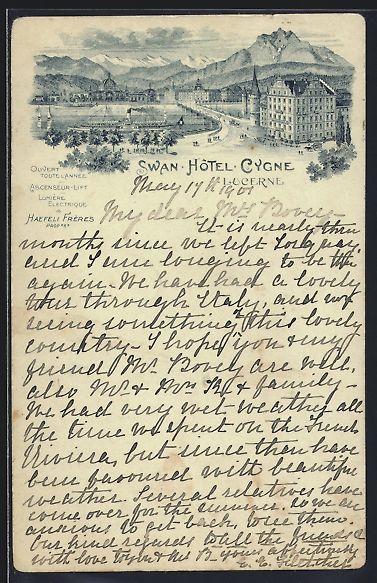 SWAN · HÔTEL · CYGNE
LUCERNE
OUVERT
TOUTE L'ANNÉE
ASCENSEUR-LIFT
LUMIÈRE
ELECTRIQUE
HAEFELI FRÈRES
PROPRES
May 17th 1901
My dear Mrs Bovey
It is nearly three
months since we left Torquay,
and I am longing to be there
again. We have had a lovely
tour through Italy, and now
seeing something of this lovely
country. I hope you & my
friend Mr Bovey are well,
also Mr & Mrs & family –
We had very wet weather all
the time we spent on the French
Riviera, but since then have
been favoured with beautiful
weather. Several relatives have
come over for the summer, so we are
anxious to get back, to see them.
Our kind regards to all the friends &
with love to you & Mr B. yours affectionately